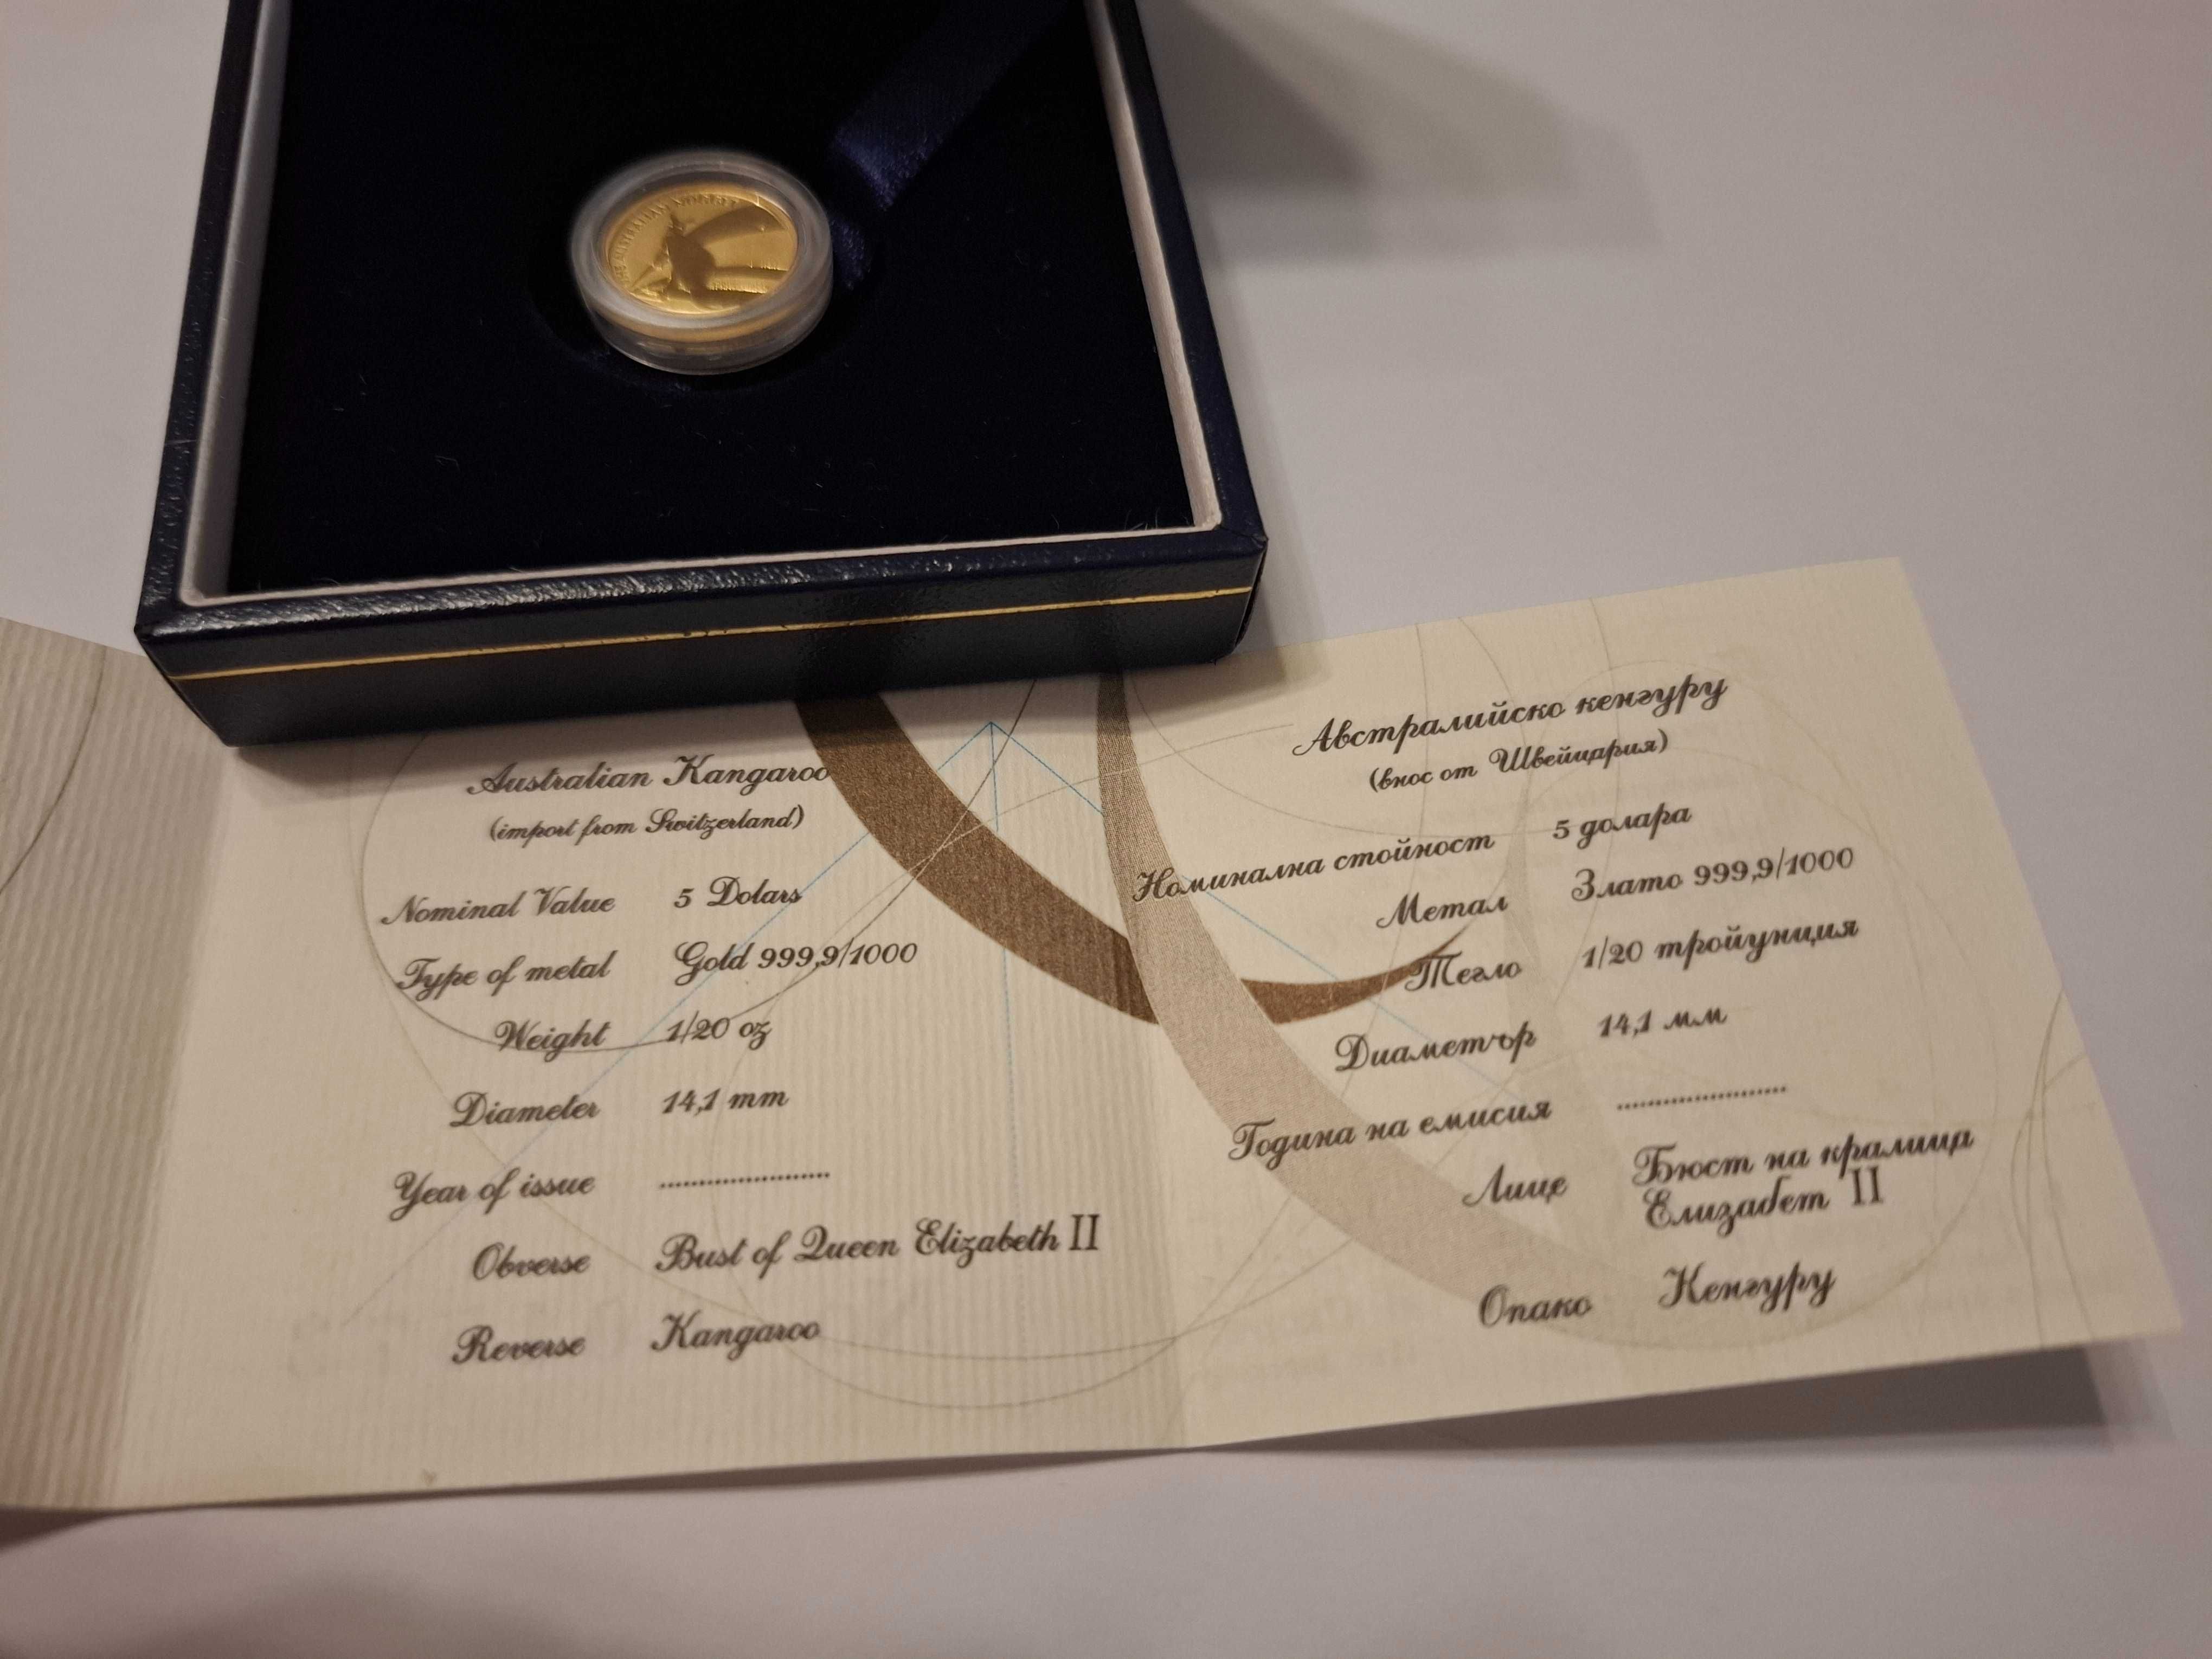 THE AUSTRALIAN NUGGET
Australian Kangaroo
(import from Switzerland)
Nominal Value 5 Dolars
Type of metal Gold 999,9/1000
Weight 1/20 oz
Diameter 14,1 mm
Year of issue ........................
Obverse Bust of Queen Elizabeth II
Reverse Kangaroo
Австралийско кенгуру
(внос от Швейцария)
Номинална стойност 5 долара
Метал Злато 999,9/1000
Тегло 1/20 тройунция
Диаметър 14,1 мм
Година на емисия ........................
Лице Бюст на кралица
Елизабет II
Опако Кенгуру